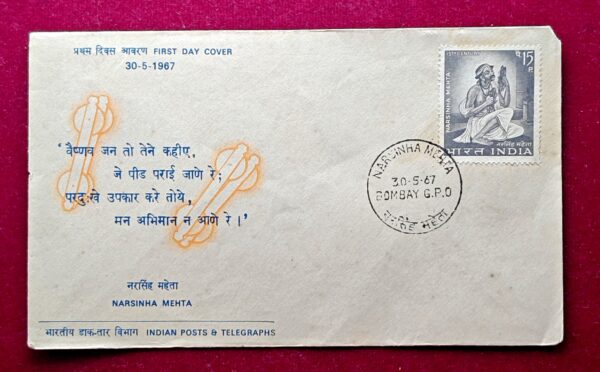 प्रथम दिवस आवरण FIRST DAY COVER
30-5-1967
'वैष्णव जन तो तेने कहीए,
जे पीड पराई जाणे रे;
परदुःखे उपकार करे तोये,
मन अभिमान न आणे रे।'
नरसिंह महेता
NARSINHA MEHTA
भारतीय डाक-तार विभाग INDIAN POSTS & TELEGRAPHS
15TH CENTURY
15
P
NARSINHA MEHTA
नरसिंह महेता
भारत INDIA
NARSINHA MEHTA
30-5-67
BOMBAY G.P.O
नरसिंह महेता